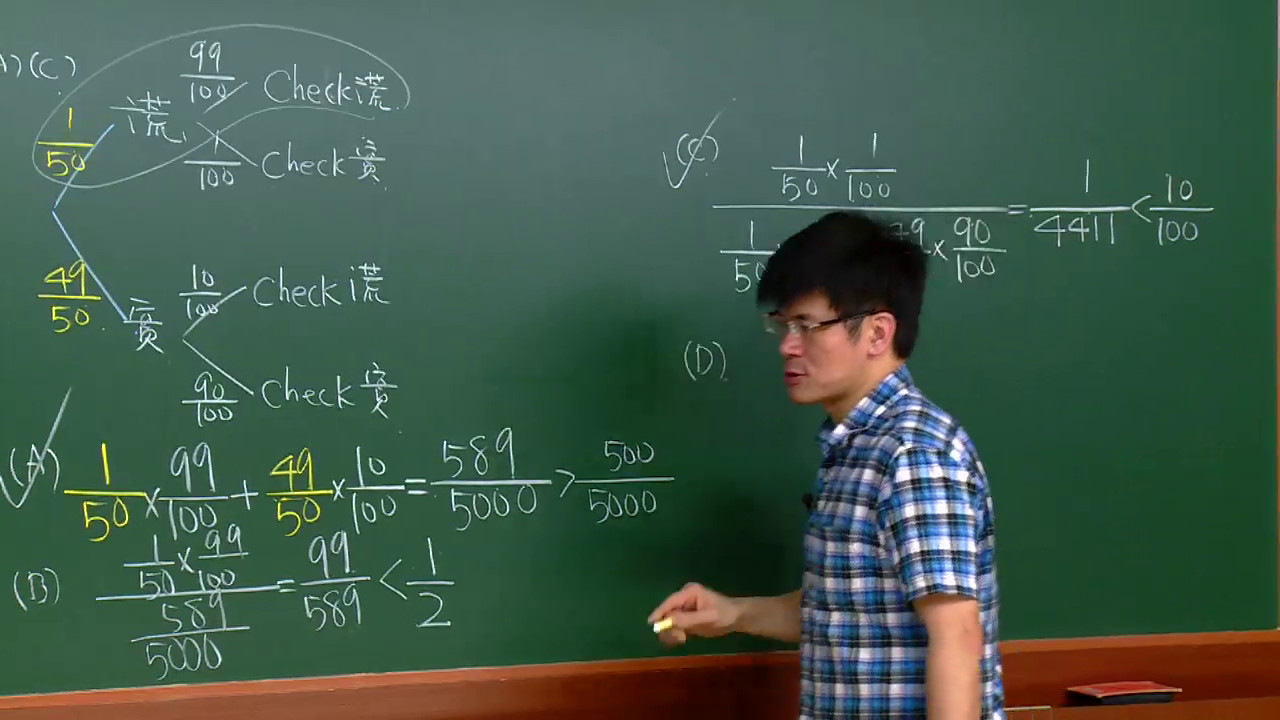 A)(C)
1/50 謊 99/100 Check謊
1/100 Check實
49/50 實 10/100 Check謊
90/100 Check實
(A) 1/50 × 99/100 + 49/50 × 10/100 = 589/5000 > 500/5000
(B) (1/50 × 99/100) / (589/5000) = 99/589 < 1/2
(C) (1/50 × 1/100) / (1/50 49 × 90/100) = 1/4411 < 10/100
(D)